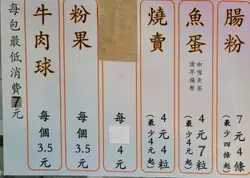 腸粉
7元4條
(最少四條起)
魚蛋
咖喱魚蛋
4元7粒
燒賣
4元4粒
(最少4元起)
每
4元
粉果
每個3.5元
牛肉球
每個3.5元
每包最低消費7元